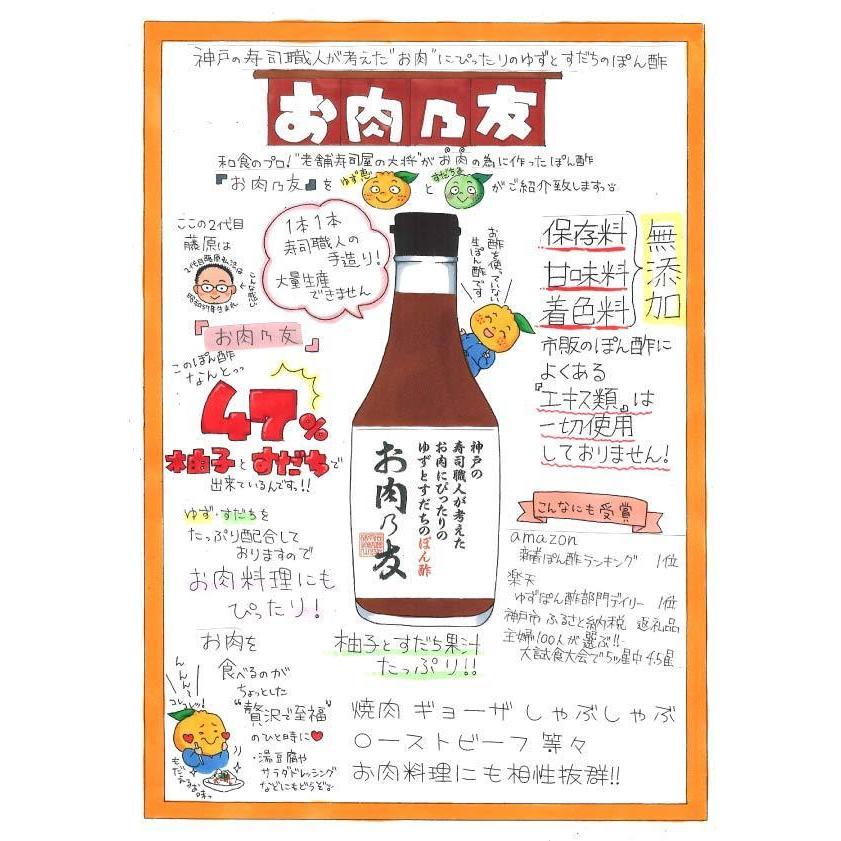 神戸の寿司職人が考えた"お肉"にぴったりのゆずとすだちのぽん酢
お肉乃友
和食のプロ!"老舗寿司屋の大将"がお肉の為に作ったぽん酢
『お肉乃友』を
ゆず恵
と
すだち
がご紹介致しますっ
ここの2代目
藤原は
こんな感じ
1本1本
寿司職人の
手造り!
大量生産
できません
お酢を使っていない
生ぽん酢です
保存料
甘味料
着色料
無添加
市販のぽん酢に
よくある
『エキス類』は
一切使用
しておりません!
『お肉乃友』
このぽん酢
なんとっっ
47%
柚子とすだちで
出来ているんですっ!!
ゆず・すだちを
たっぷり配合して
おりますので
お肉料理にも
ぴったり!
神戸の
寿司職人が考えた
お肉にぴったりの
ゆずとすだちのぽん酢
お肉乃友
柚子とすだち果汁
たっぷり!!
こんなにも受賞
amazon
新着ぽん酢ランキング 1位
楽天
ゆずぽん酢部門デイリー 1位
神戸市 ふるさと納税 返礼品
主婦100人が選ぶ!!
大試食大会で5ッ星中4.5星
お肉を
食べるのが
ちょっとした
"贅沢で至福"
のひと時に
・湯豆腐や
サラダドレッシング
などにもどうぞ
んんん~
コレコレッ!
焼肉 ギョーザ しゃぶしゃぶ
ローストビーフ 等々
お肉料理にも相性抜群!!